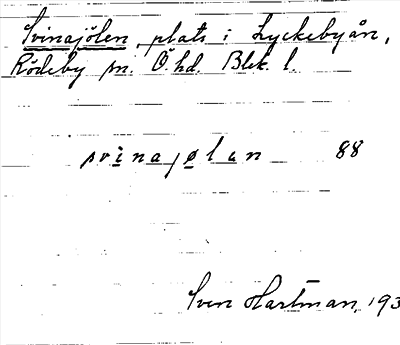 Svinajölen, plats i Lyckebyån,
Rödeby sn. Ö hd. Blek. l.
svinajølan 88
Sven Hartman, 193